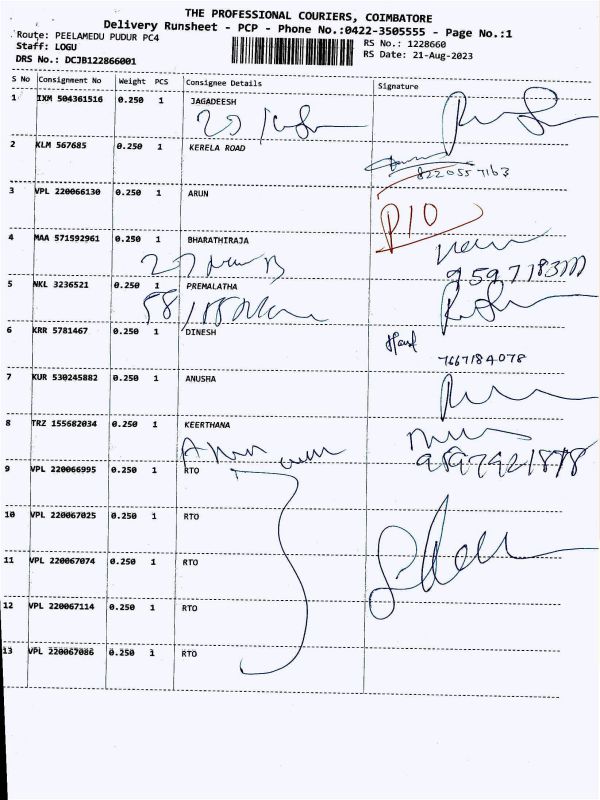 THE PROFESSIONAL COURIERS, COIMBATORE
Delivery Runsheet - PCP - Phone No.:0422-3505555 - Page No.:1
Route: PEELAMEDU PUDUR PC4
RS No.: 1228660
Staff: LOGU
RS Date: 21-Aug-2023
DRS No.: DCJB122866001
S No Consignment No Weight PCS Consignee Details Signature
1 IXM 504361516 0.250 1 JAGADEESH
2 KLM 567685 0.250 1 KERELA ROAD
8220557163
3 VPL 220066130 0.250 1 ARUN
4 MAA 571592961 0.250 1 BHARATHIRAJA
5 NKL 3236521 0.250 1 PREMALATHA
6 KRR 5781467 0.250 1 DINESH
7667184078
7 KUR 530245882 0.250 1 ANUSHA
8 TRZ 155682034 0.250 1 KEERTHANA
9 VPL 220066995 0.250 1 RTO
10 VPL 220067025 0.250 1 RTO
11 VPL 220067074 0.250 1 RTO
12 VPL 220067114 0.250 1 RTO
13 VPL 220067086 0.250 1 RTO